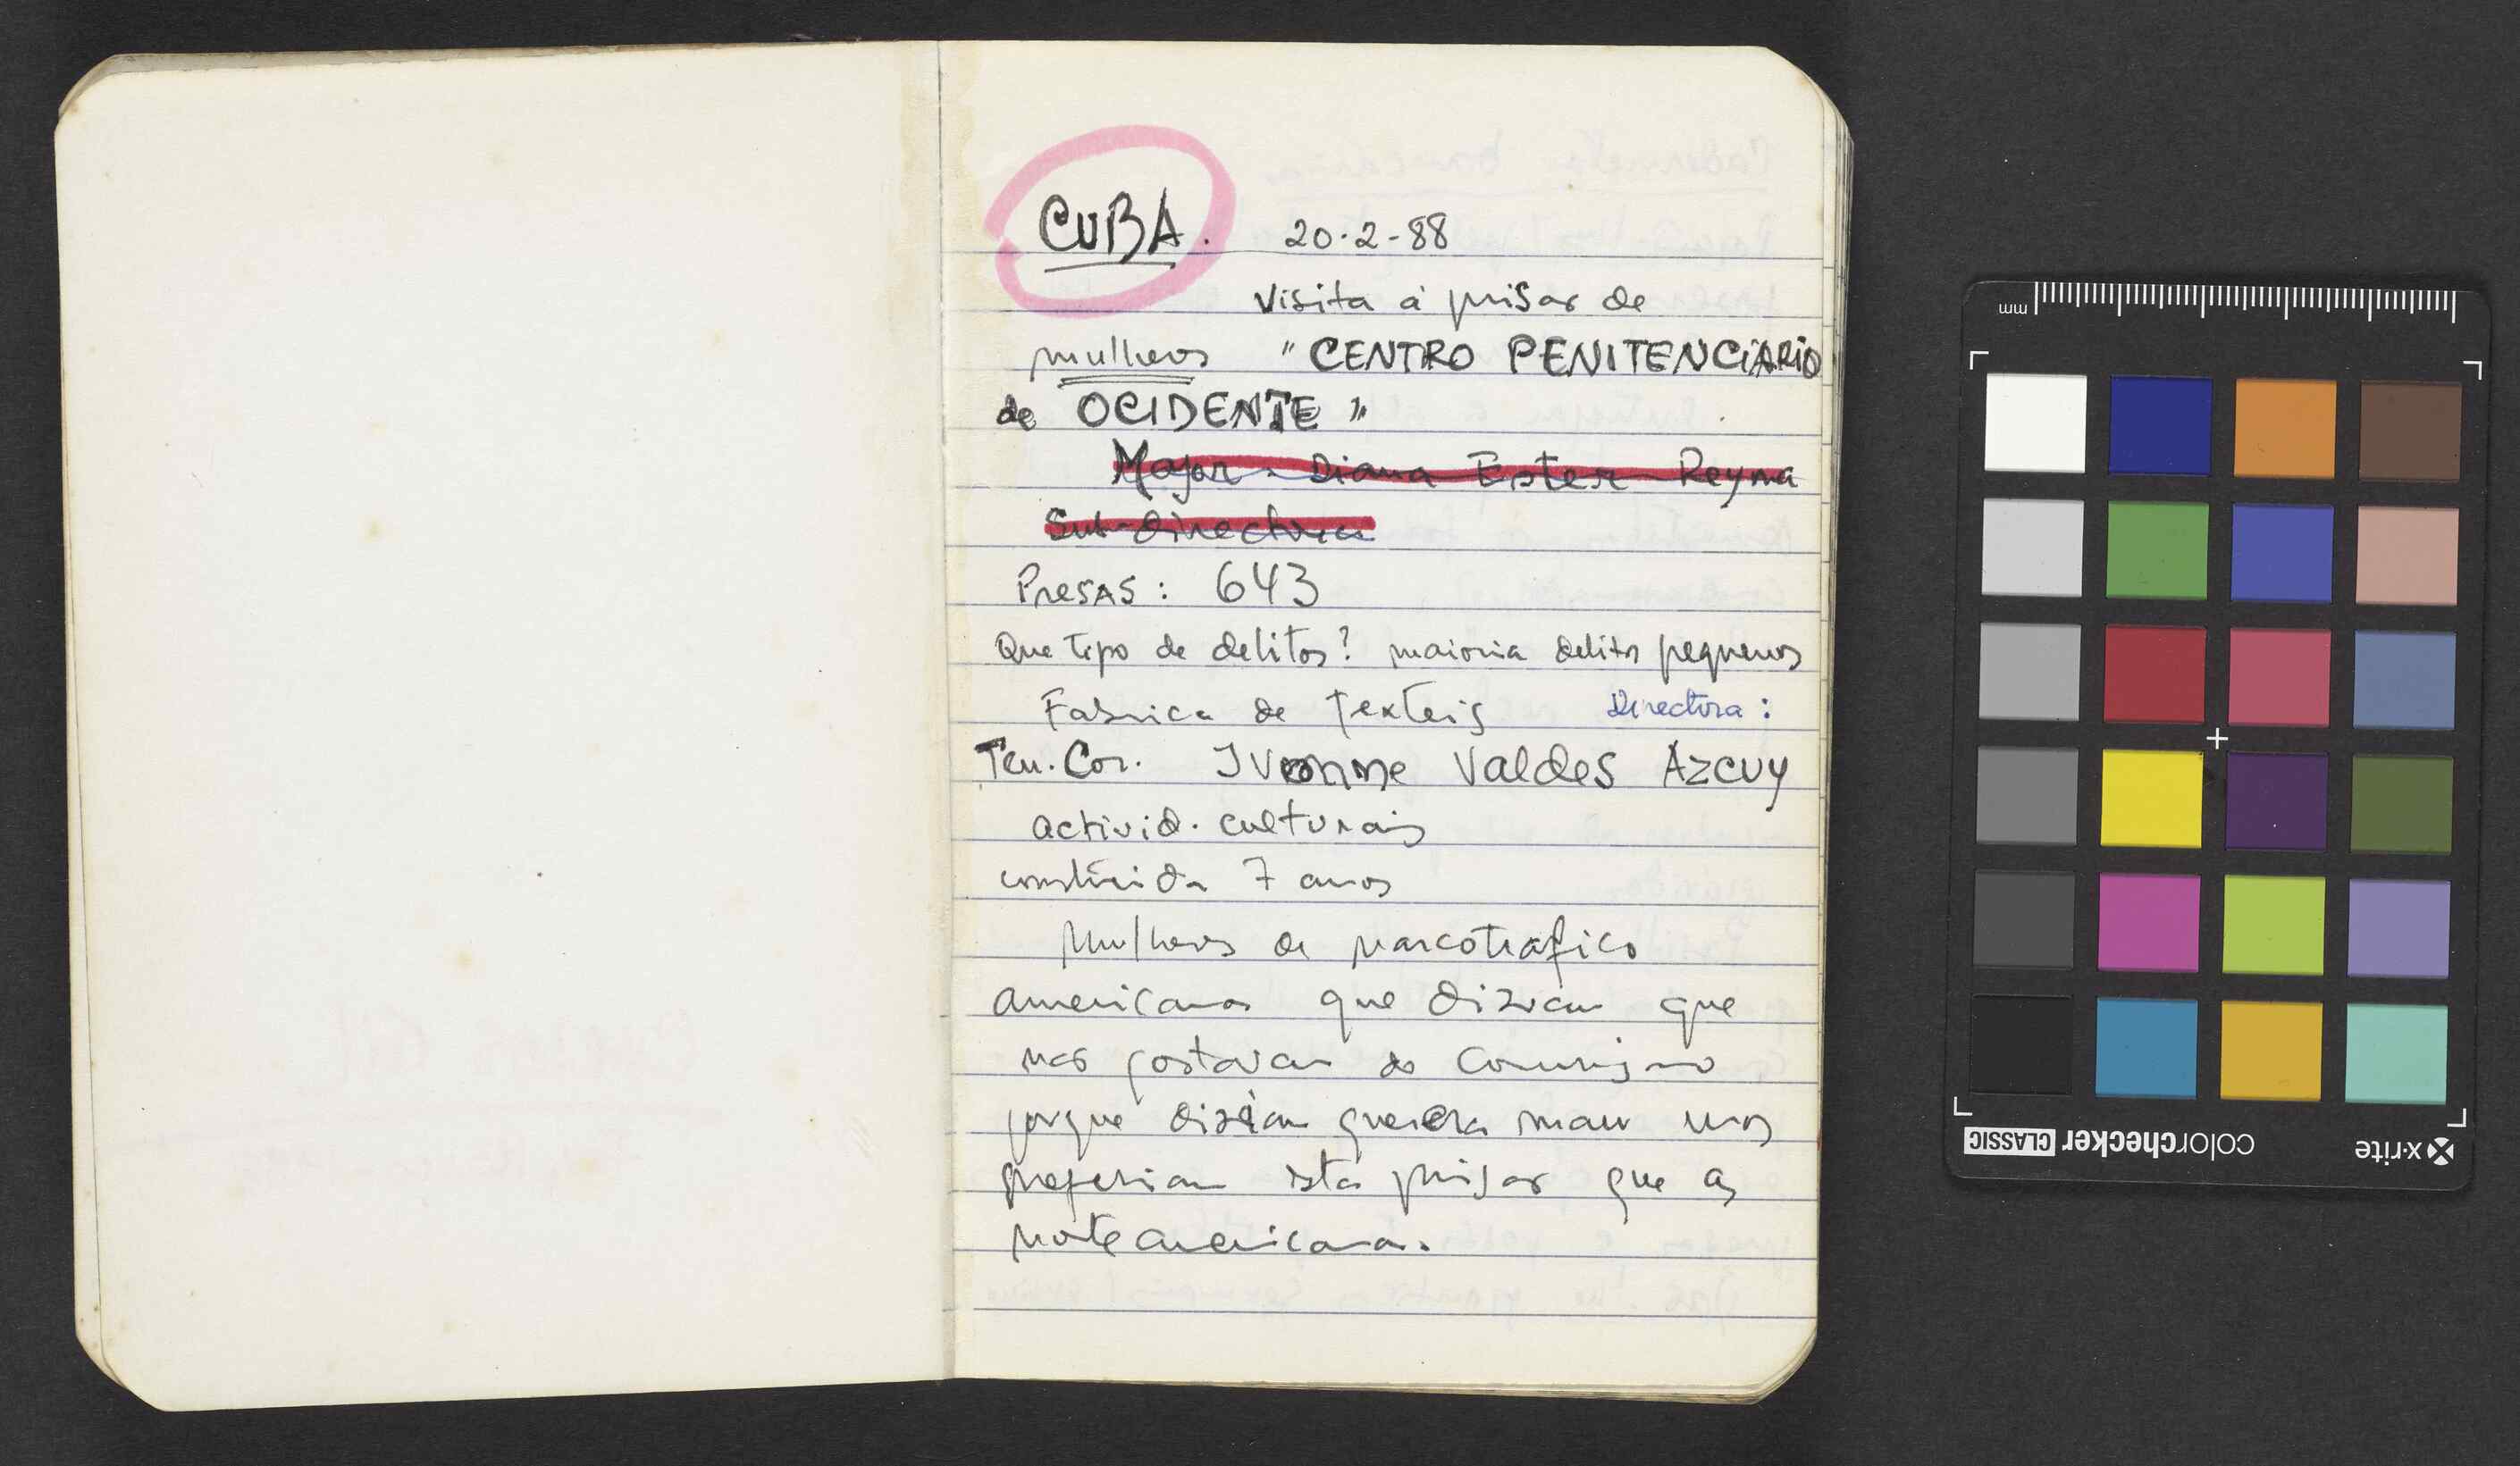 CUBA. 20-2-88
Visita á prisão de
mulheres "CENTRO PENITENCIÁRIO
de OCIDENTE"
Major - Diana Ester Reyna
Sub-directora
PresAS: 643
Que tipo de delitos? maioria delitos pequenos
Fabrica de Texteis Directora:
Ten. Cor. Ivonne Valdes Azcuy
activid. culturais
construida 7 anos
Mulheres de narcotrafico
americanas que diziam que
não gostavam do Comunismo
porque diziam que era mau mas
preferiam esta prisão que as
norte americanas.
mm
colorchecker CLASSIC
x-rite